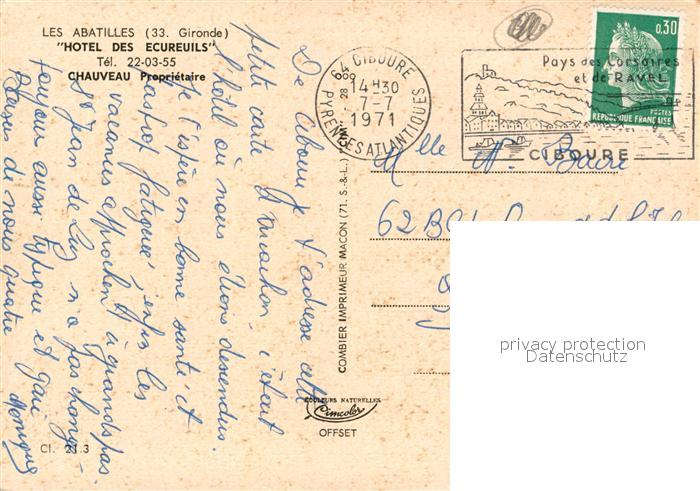 LES ABATILLES (33. Gironde)
"HOTEL DES ECUREUILS"
Tél. 22-03-55
CHAUVEAU Propriétaire
De Ciboure je t'adresse cette
petite carte d'Arcachon, c'était
l'hôtel où nous étions descendus.
Je t'espère en bonne santé, et
pas trop fatiguée, enfin les
vacances approchent à grands pas.
St Jean de Luz n'a pas changé
toujours aussi typique et gai
de nous quatre
Monique
Cl. 21.3
COMBIER IMPRIMEUR MACON (71. S.-&-L.)
COULEURS NATURELLES
Cimcolor
OFFSET
64 CIBOURE
14H30
7-7
1971
PYRENEES ATLANTIQUES
Pays des Corsaires
et de RAVEL
CIBOURE
0,30
POSTES
REPUBLIQUE FRANÇAISE
Melle M.
62 Bd
privacy protection
Datenschutz